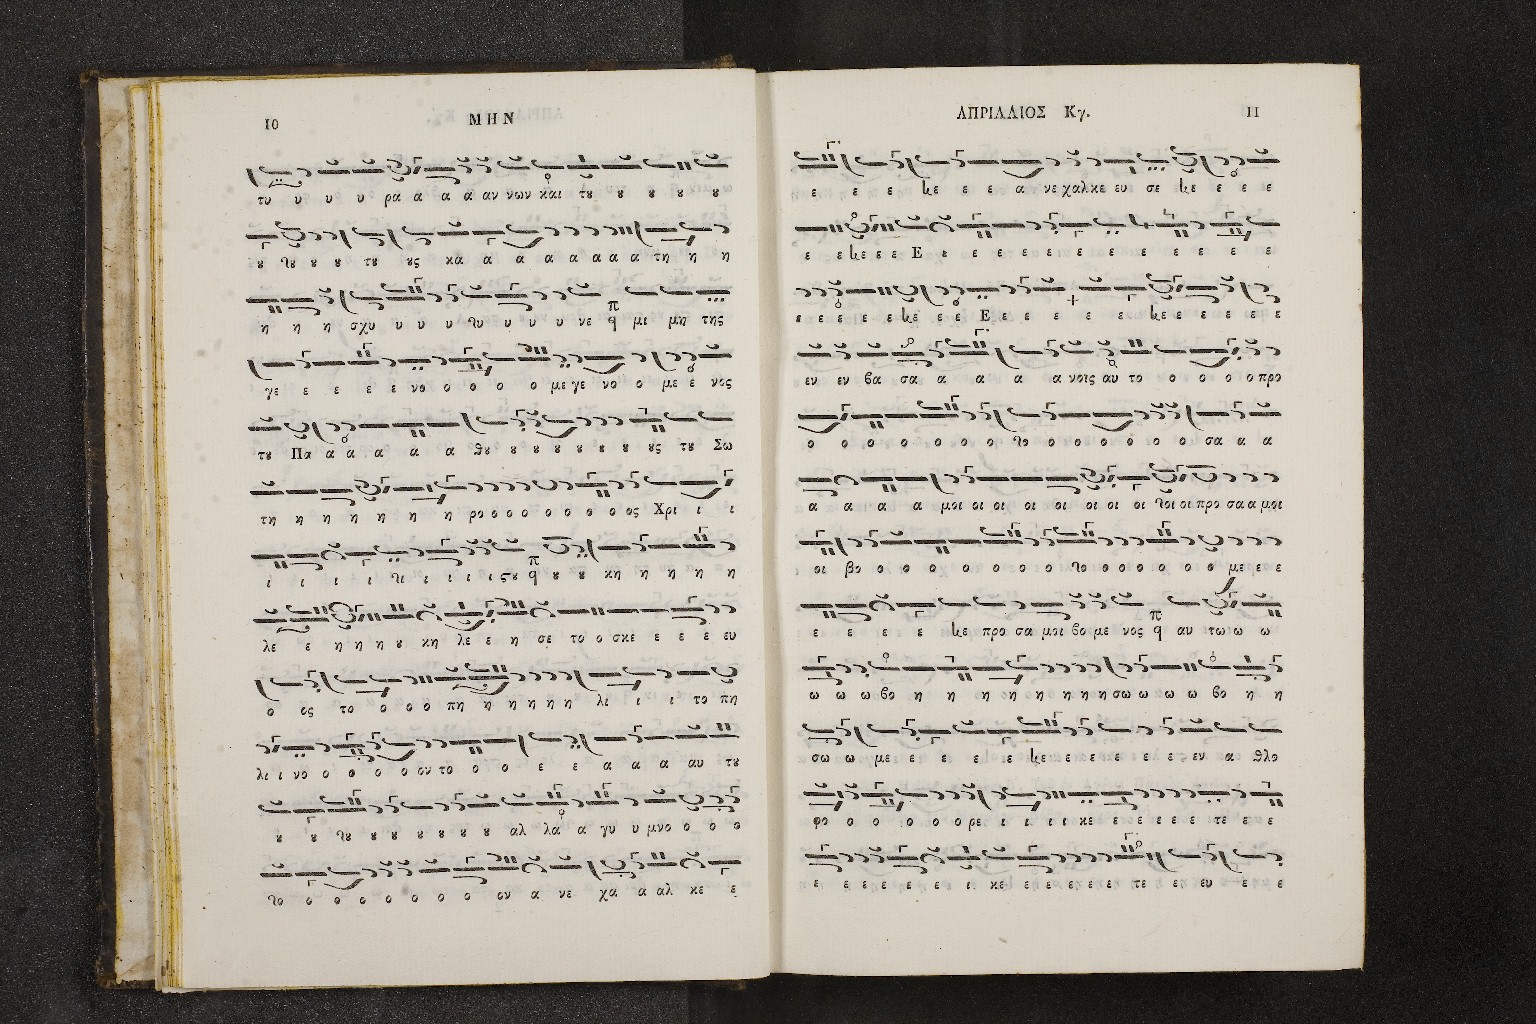 10 ΜΗΝ
τυ υ υ υ ρα α α α αν νων και τȣ ȣ ȣ ȣ ȣ
ȣ ȣ ȣ ȣ τȣ ȣς κα α α α α α α τη η η
η η η σχυ υ υ υ υ υ υ νε μι μη της
γε ε ε ε ε νο ο ο ο ο με γε νο ο με ε νος
τȣ Πα α α α α α θȣ ȣ ȣ ȣ ȣ ȣ ȣ ȣς τȣ Σω
τη η η η η η η ρο ο ο ο ο ο ο ο ος Χρι ι ι
ι ι ι ι ι ι ι ι ςȣ ȣ ȣ κη η η η η
λε ε η η η ȣ κη λε ε η σε το ο σκε ε ε ε ευ
ο ος το ο ο ο πη η η η η η λι ι ι το πη
λι ι νο ο ο ο ο ον το ο ο ε ε α α α αυ τȣ
ȣ ȣ ȣ ȣ ȣ ȣ ȣ ȣ αλ λα α γυ υ μνο ο ο ο
ο ο ο ο ο ο ο ον α νε χα α αλ κε ε
ΑΠΡΙΛΛΙΟΣ Κγ. 11
ε ε ε ε ε ε α νε χαλκε ευ σε ε ε ε ε
ε ε ε ε ε Ε ε ε ε ε ε ε ε ε ε ε ε ε
ε ε ε ε ε ε ε ε Ε ε ε ε ε ε ε ε ε ε ε ε
εν εν βα σα α α α α νοις αυ το ο ο ο ο προ
ο ο ο ο ο ο ο ο ο ο ο ο ο ο σα α α
α α α α μοι οι οι οι οι οι οι οι οι οι προ σα α μοι
οι βο ο ο ο ο ο ο ο ο ο ο ο ο ο με ε ε
ε ε ε ε ε προ σα μοι βο με νος αυ τω ω ω
ω ω ω βο η η η η η η η η σω ω ω ω βο η η
σω ω με ε ε ε ε ε ε ε ε ε ε εν α θλο
φο ο ο ο ο ο ρε ι ι ι ι κε ε ε ε ε ε τε ε ε
ε ε ε ε ε ε ι κε ε ε ε ε ε τε ε ευ ε ε